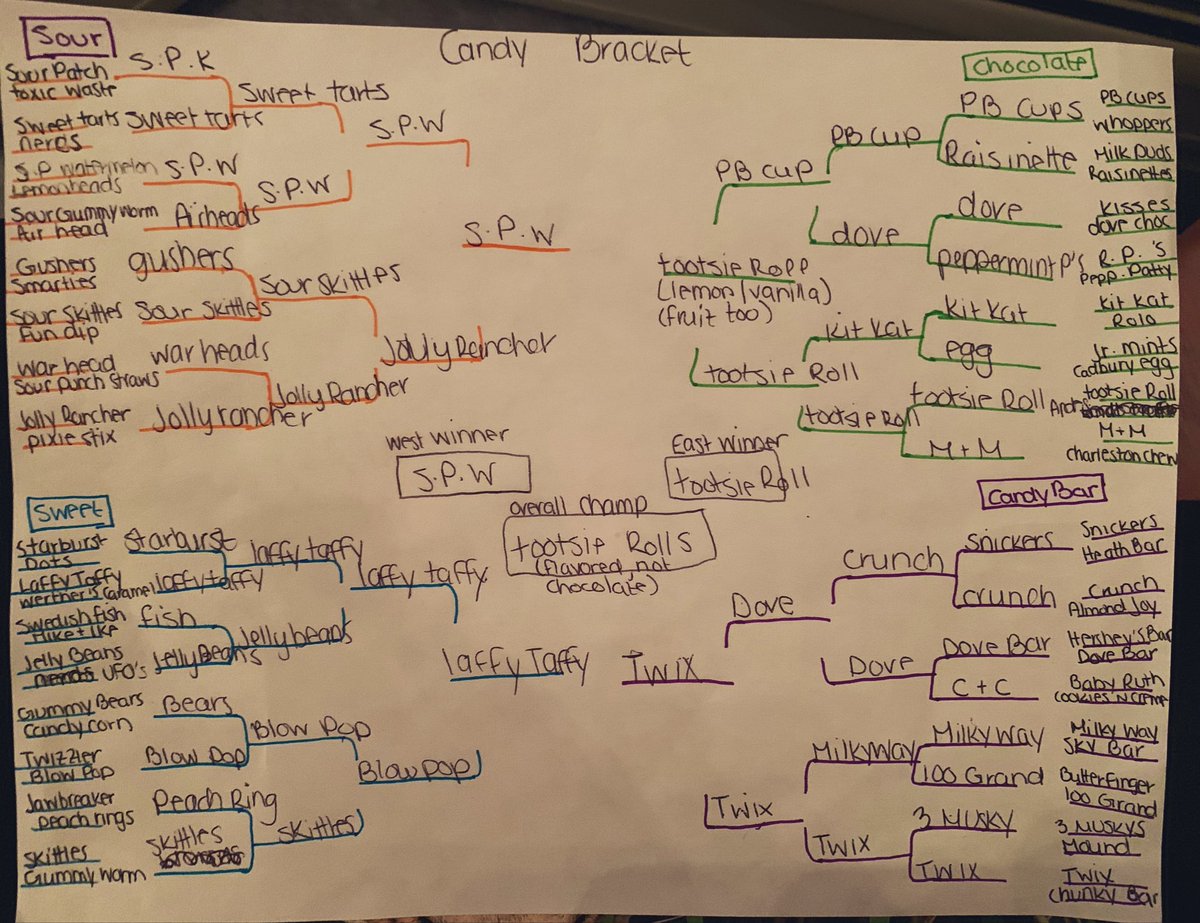 Candy Bracket
Sour
Sour Patch
toxic waste
Sweet tarts
nerds
S.P watermelon
Lemonheads
Sour Gummy worm
Air head
Gushers
Smarties
Sour Skittles
Fun dip
War head
Sour punch straws
Jolly Rancher
pixie stix
S.P.K
Sweet tarts
S.P.W
Airheads
gushers
Sour Skittles
war heads
Jolly rancher
Sweet tarts
S.P.W
Sour Skittles
Jolly Rancher
S.P.W
Jolly Rancher
S.P.W
Chocolate
PB CUPS
Whoppers
Milk Duds
Raisinettes
Kisses
dove choc
R.P.'S
Pepp. Patty
Kit Kat
Rolo
Jr. mints
Cadbury egg
tootsie Roll
M+M
charleston chew
PB CUPS
Raisinette
dove
peppermint P's
Kit Kat
egg
tootsie Roll
M+M
PB CUP
dove
Kit Kat
tootsie Roll
PB CUP
tootsie Roll
tootsie Roll
(lemon/vanilla)
(fruit too)
west winner
S.P.W
East winner
tootsie Roll
overall champ
tootsie Rolls
(flavored not
chocolate)
Sweet
Starburst
Dots
Laffy Taffy
Werther's Caramel
Swedish fish
Mike+Ike
Jelly Beans
nerds UFO's
Gummy Bears
Candy corn
Twizzler
Blow Pop
Jawbreaker
peach rings
Skittles
Gummy worm
Starburst
laffy taffy
fish
Jelly Beans
Bears
Blow Pop
Peach Ring
Skittles
laffy taffy
Jelly beans
Blow Pop
Skittles
laffy taffy
Blow pop
laffy Taffy
Candy Bar
Snickers
Heath Bar
Crunch
Almond Joy
Hershey's Bar
Dove Bar
Baby Ruth
Cookies N Creme
Milky Way
Sky Bar
Butterfinger
100 Grand
3 MUSKYS
Mound
Twix
Chunky Bar
Snickers
crunch
Dove Bar
C+C
Milky Way
100 Grand
3 MUSKY
Twix
Crunch
Dove
Milky Way
Twix
Dove
Twix
Twix